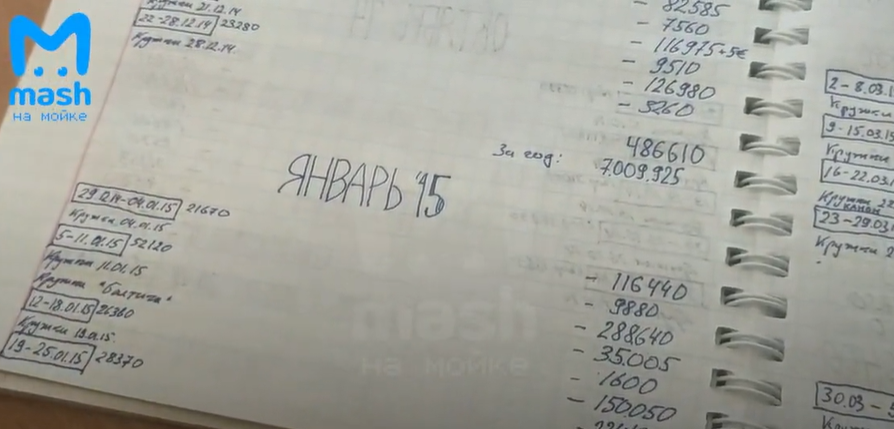 Кружки 21.12.14
22-28.12.14 23280
Кружки 28.12.14
mash
на мойке
- 82585
- 7560
- 116975+5€
- 9510
- 126980
- 3260
486610
За год: 7.009.925
ЯНВАРЬ '15
29.12.14-04.01.15 21670
Кружки 04.01.15
5-11.01.15 52120
Кружки 11.01.15
Кружки "Балтика"
12-18.01.15 26360
Кружки 19.01.15.
19-25.01.15 28370
- 116440
- 9880
- 288640
- 35.005
- 1600
- 150.050
mash
на мойке
2-8.03.1
Кружки
9-15.03.15
Кружки
16-22.03.1
Кружки 22
23-29.03.1
Кружки 2
30.03-5